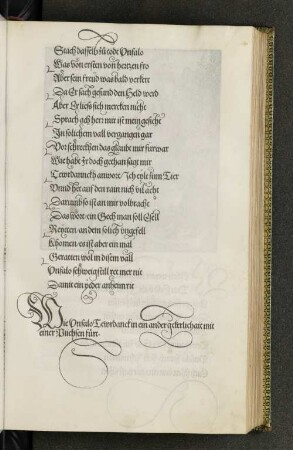 Was von ersten von hertzen fro
Aber sein freud was bald verkert
Da Er sach gesund den Held werd
Aber Er ließ sich mercken nicht
Sprach gib herr mir ist mein gesicht
In solichem vall vergangen gar
Vor schrecken das glaubt mir furwar
Wie habt Ir doch gethan sagt mir
Tewrdannckh antwort Ich eylt zum Tier
Vnnd het auf den rain nich vil acht
Darumb so ist an mir volbracht
Das wort ein Gech man soll Esell
Reyten an dem solich ungefell
Khomen es ist aber ein mal
Geraten wol in disem vall
Vnfalo schweig still ret mer nit
Damit ein yeder anheim rit
Wie Vnfalo Tewrdannck in ein ander geferlichait mit
einer Puchsen fürt